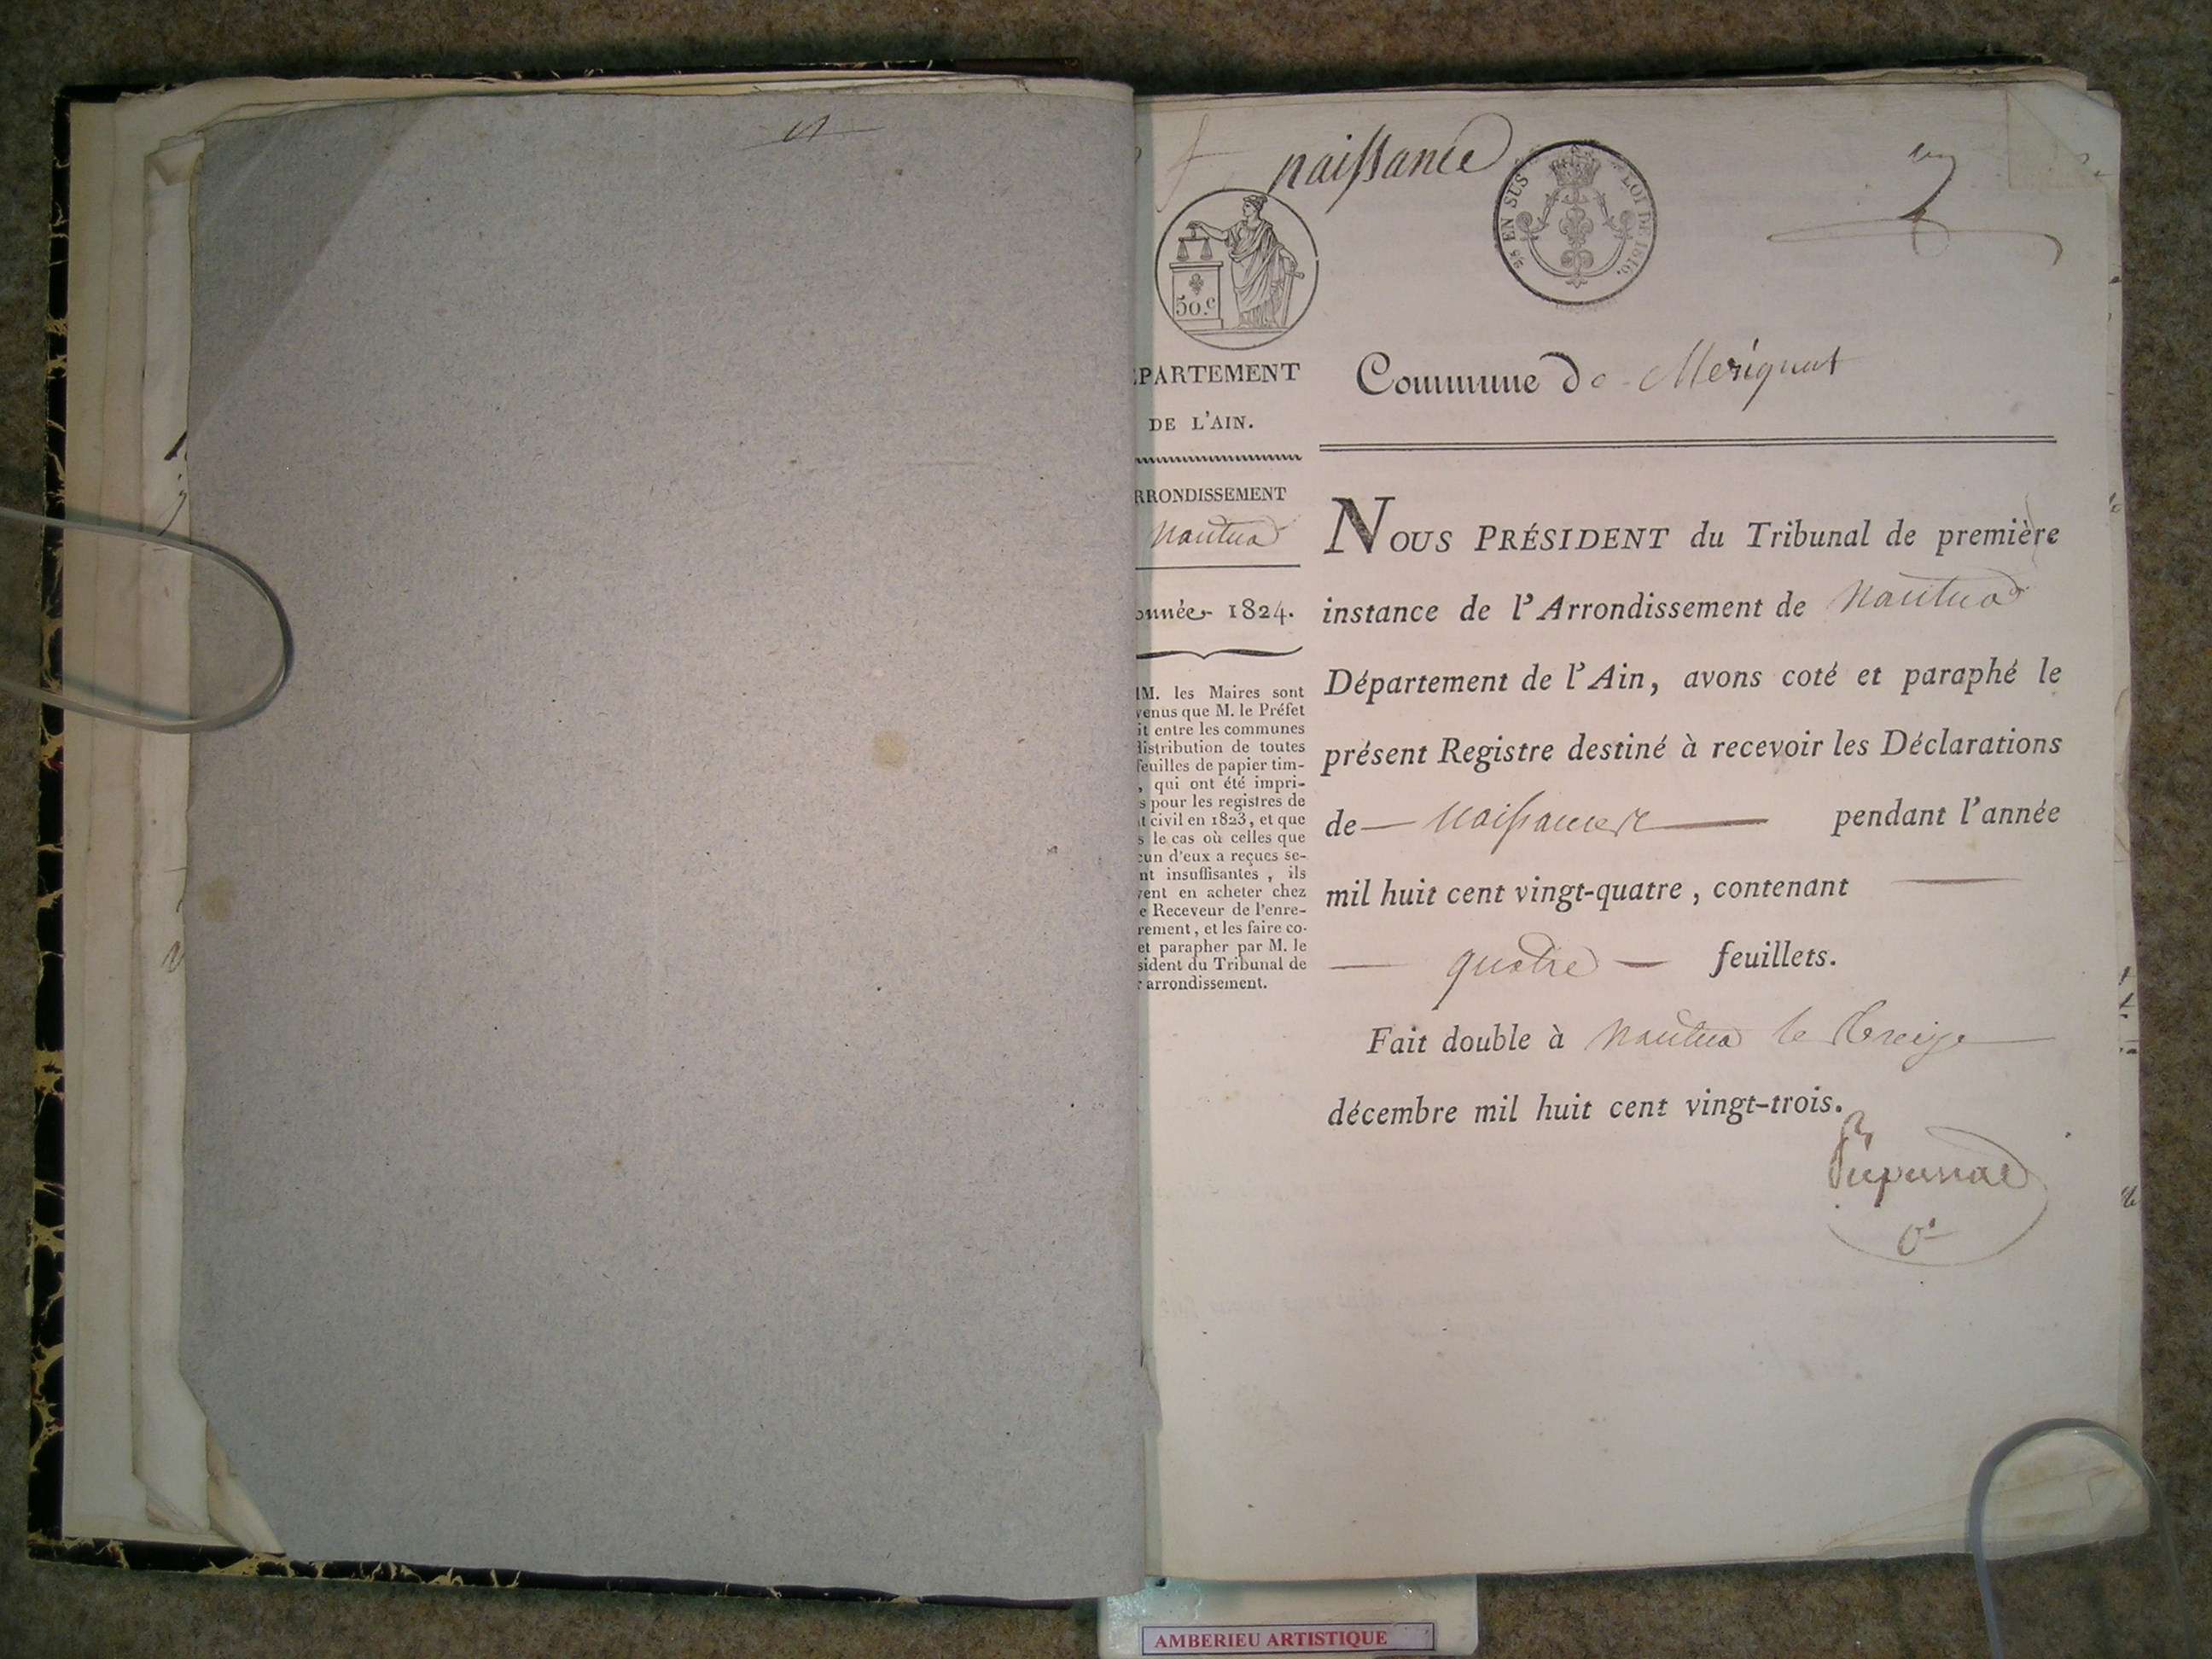 naissance
25 EN SUS
LOI DE 1816.
50.c
PARTEMENT
DE L'AIN.
Commune de Merignat
RRONDISSEMENT
Nantua
onnée 1824.
NOUS PRÉSIDENT du Tribunal de première
instance de l'Arrondissement de Nantua
Département de l'Ain, avons coté et paraphé le
présent Registre destiné à recevoir les Déclarations
de naissances pendant l'année
mil huit cent vingt-quatre, contenant
quatre feuillets.
Fait double à Nantua le treize
décembre mil huit cent vingt-trois.
M. les Maires sont
venus que M. le Préfet
it entre les communes
distribution de toutes
feuilles de papier tim-
, qui ont été impri-
s pour les registres de
t civil en 1823, et que
s le cas où celles que
cun d'eux a reçues se-
nt insuffisantes, ils
vent en acheter chez
e Receveur de l'enre-
rement, et les faire co-
et parapher par M. le
sident du Tribunal de
r arrondissement.
AMBERIEU ARTISTIQUE